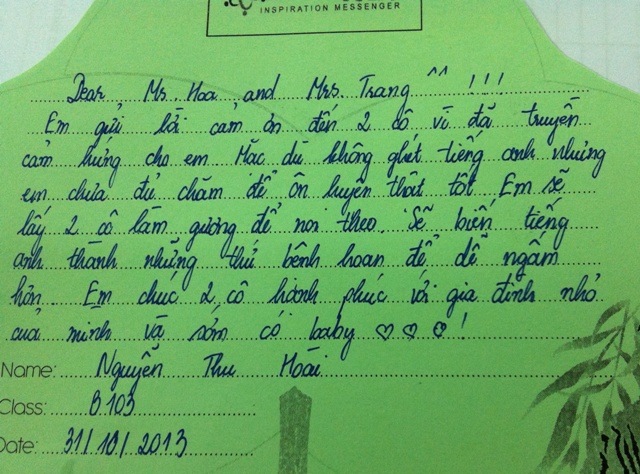 INSPIRATION MESSENGER
Dear Ms. Hoa and Mrs. Trang ^^ !!!
Em gửi lời cảm ơn đến 2 cô vì đã truyền
cảm hứng cho em Mặc dù không ghét tiếng anh nhưng
em chưa đủ chăm để ôn luyện thật tốt Em sẽ
lấy 2 cô làm gương để noi theo. Sẽ biến tiếng
anh thành những thứ bệnh hoạn để dễ ngấm
hơn. Em chúc 2 cô hạnh phúc với gia đình nhỏ
của mình và sớm có baby ♡ ♡ ♡ !
Name: Nguyễn Thu Hoài
Class: B103
Date: 31/10/2013